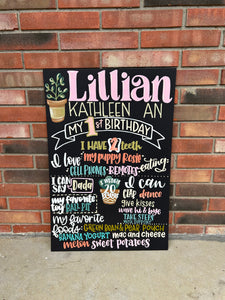 Lillian
KATHLEEN AN
MY 1st BIRTHDAY
I HAVE 2 teeth
I love my puppy Rosie eating!
CELL PHONES REMOTES
I CAN SAY Dada
I WEIGH 20
I can
CLAP dance
my favorite
give kisses
wave hi & bye
TAKE STEPS
my favorite foods
GREEN BEAN & PEAR POUCH
BANANA YOGURT mac and cheese
melon sweet potatoes